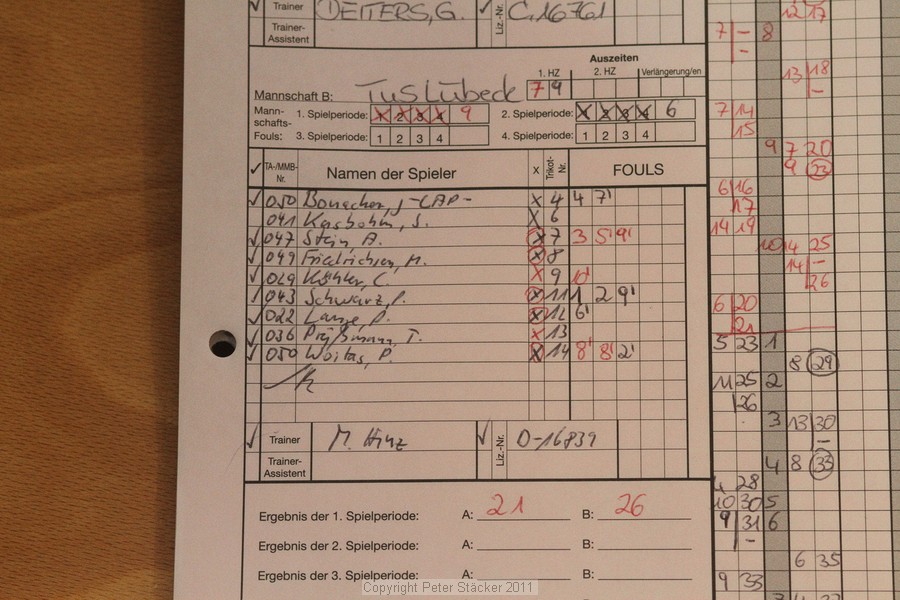 Trainer DEITERS, G. Liz.-Nr. C.16761
Trainer-Assistent
Auszeiten
1. HZ 2. HZ Verlängerung/en
Mannschaft B: TuS Lübeck 7 9
Mannschafts-Fouls: 1. Spielperiode: 1 2 3 4 9 2. Spielperiode: 1 2 3 4 6
3. Spielperiode: 1 2 3 4 4. Spielperiode: 1 2 3 4
TA-/MMB-Nr. Namen der Spieler x Trikot-Nr. FOULS
050 J -CAP- x 4 4 7'
041 S. x 6
047 Stein, A. x 7 3 5' 9'
049 Friedrichsen, M. x 8
029 Köhler, C. x 9 10'
043 Schwarz, P. x 11 1 2 9'
022 Lange, P. x 12 6'
036 T. x 13
050 Woitas, P. x 14 8' 8' 2'
Trainer M. Hinz Liz.-Nr. D-16839
Trainer-Assistent
Ergebnis der 1. Spielperiode: A: 21 B: 26
Ergebnis der 2. Spielperiode: A: B:
Ergebnis der 3. Spielperiode: A: B:
12 17
7 - 8
-
13 18
-
7 14
15
9 7 20
9 23
6 16
17
14 19
10 14 25
14 -
26
6 20
21
5 23 1
8 29
11 25 2
26
3 13 30
-
4 8 33
4 28
10 30 5
9 31 6
-
6 35
9 33
Copyright Peter Stäcker 2011